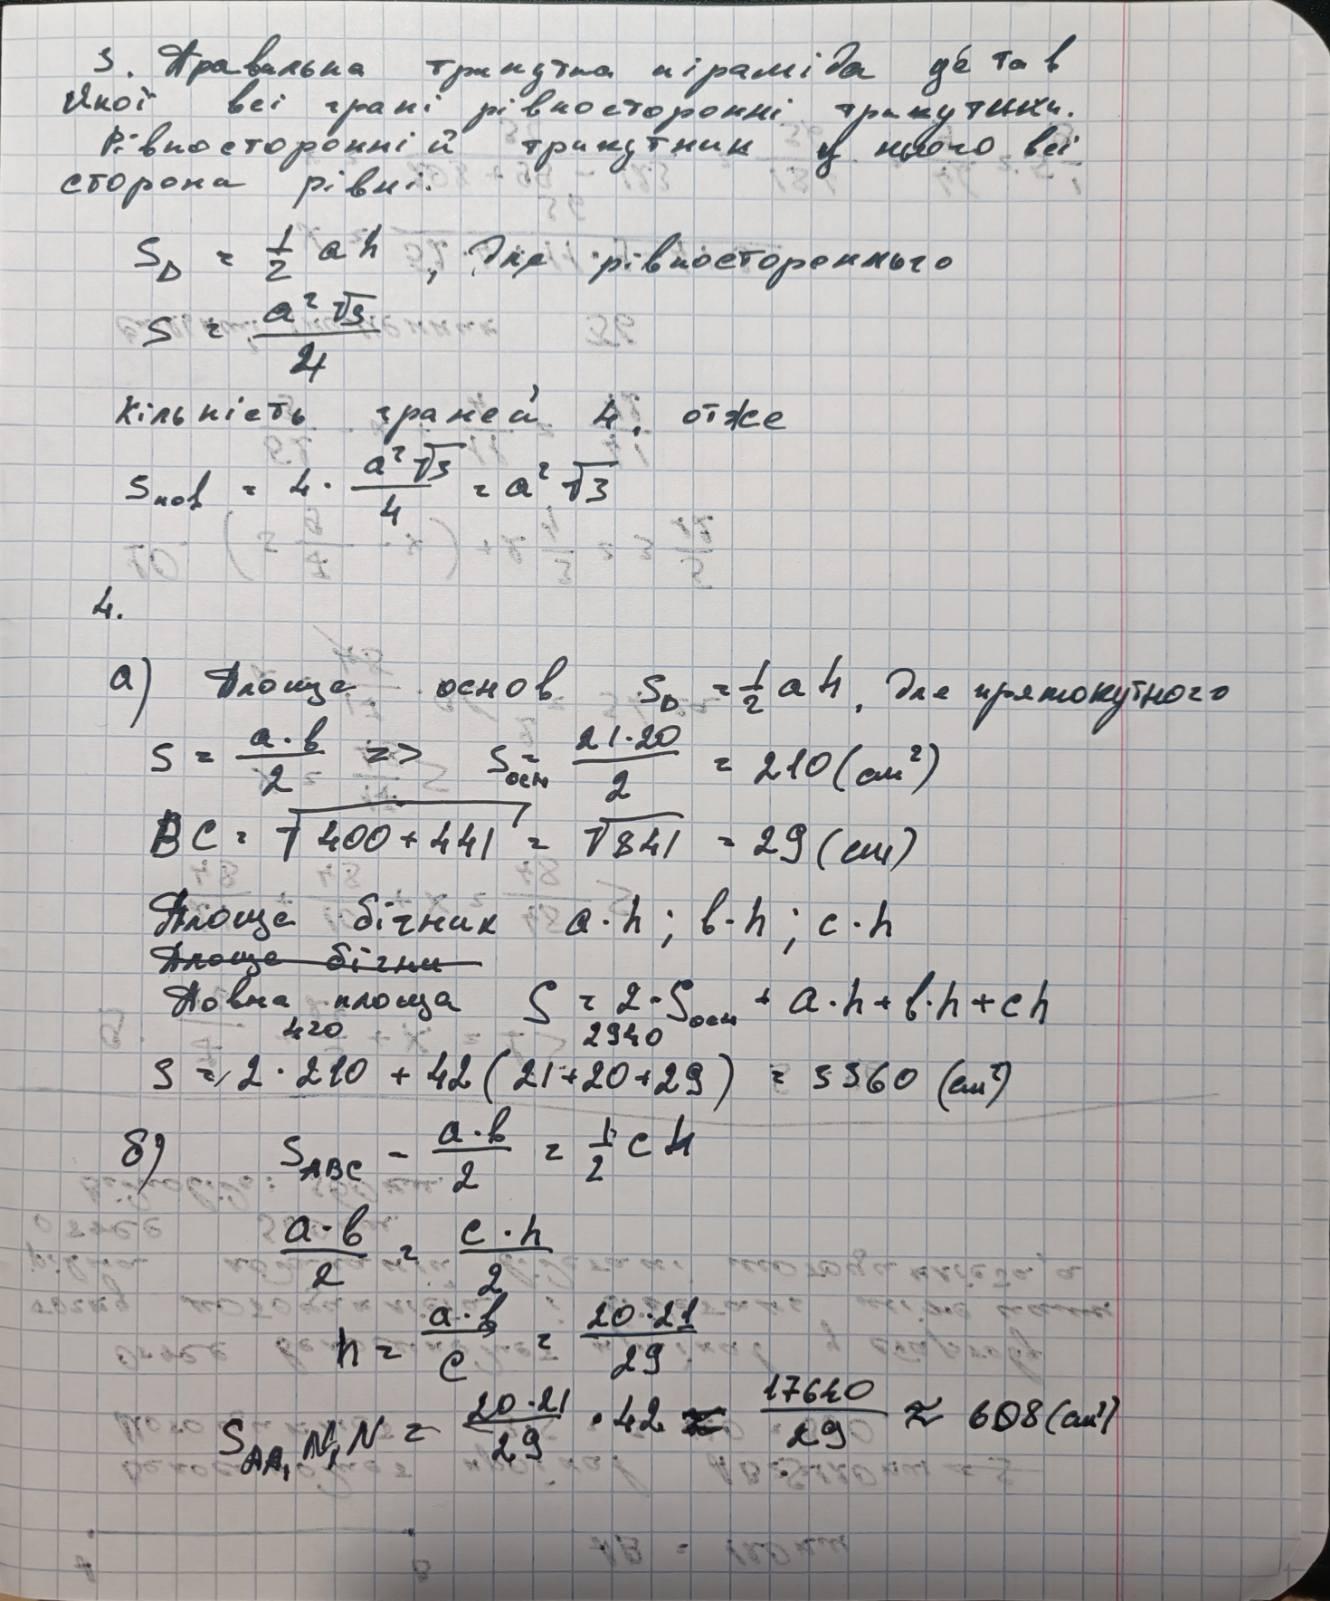 3. Правильна трикутна піраміда це та в
якої всі грані рівносторонні трикутники.
Рівносторонній трикутник у нього всі
сторона рівні.
S_D = 1/2 a h, для рівностороннього
S = a²√3/4
Кількість граней 4, отже
S_пов = 4 · a²√3/4 = a²√3
4.
а) Площа основ S_D = 1/2 a h, для прямокутного
S = a·b/2 => S_осн = 21·20/2 = 210 (см²)
BC = √400+441 = √841 = 29 (см)
Площа бічник a·h; b·h; c·h
Площа бічни
Повна площа S = 2·S_осн + a·h + b·h + ch
420 2940
S = 2·210 + 42(21+20+29) = 3360 (см²)
б) S_ABC = a·b/2 = 1/2 c h
a·b/2 = c·h/2
h = a·b/c = 20·21/29
S_AA₁N₁N = 20·21/29 · 42 = 17640/29 ≈ 608 (см²)